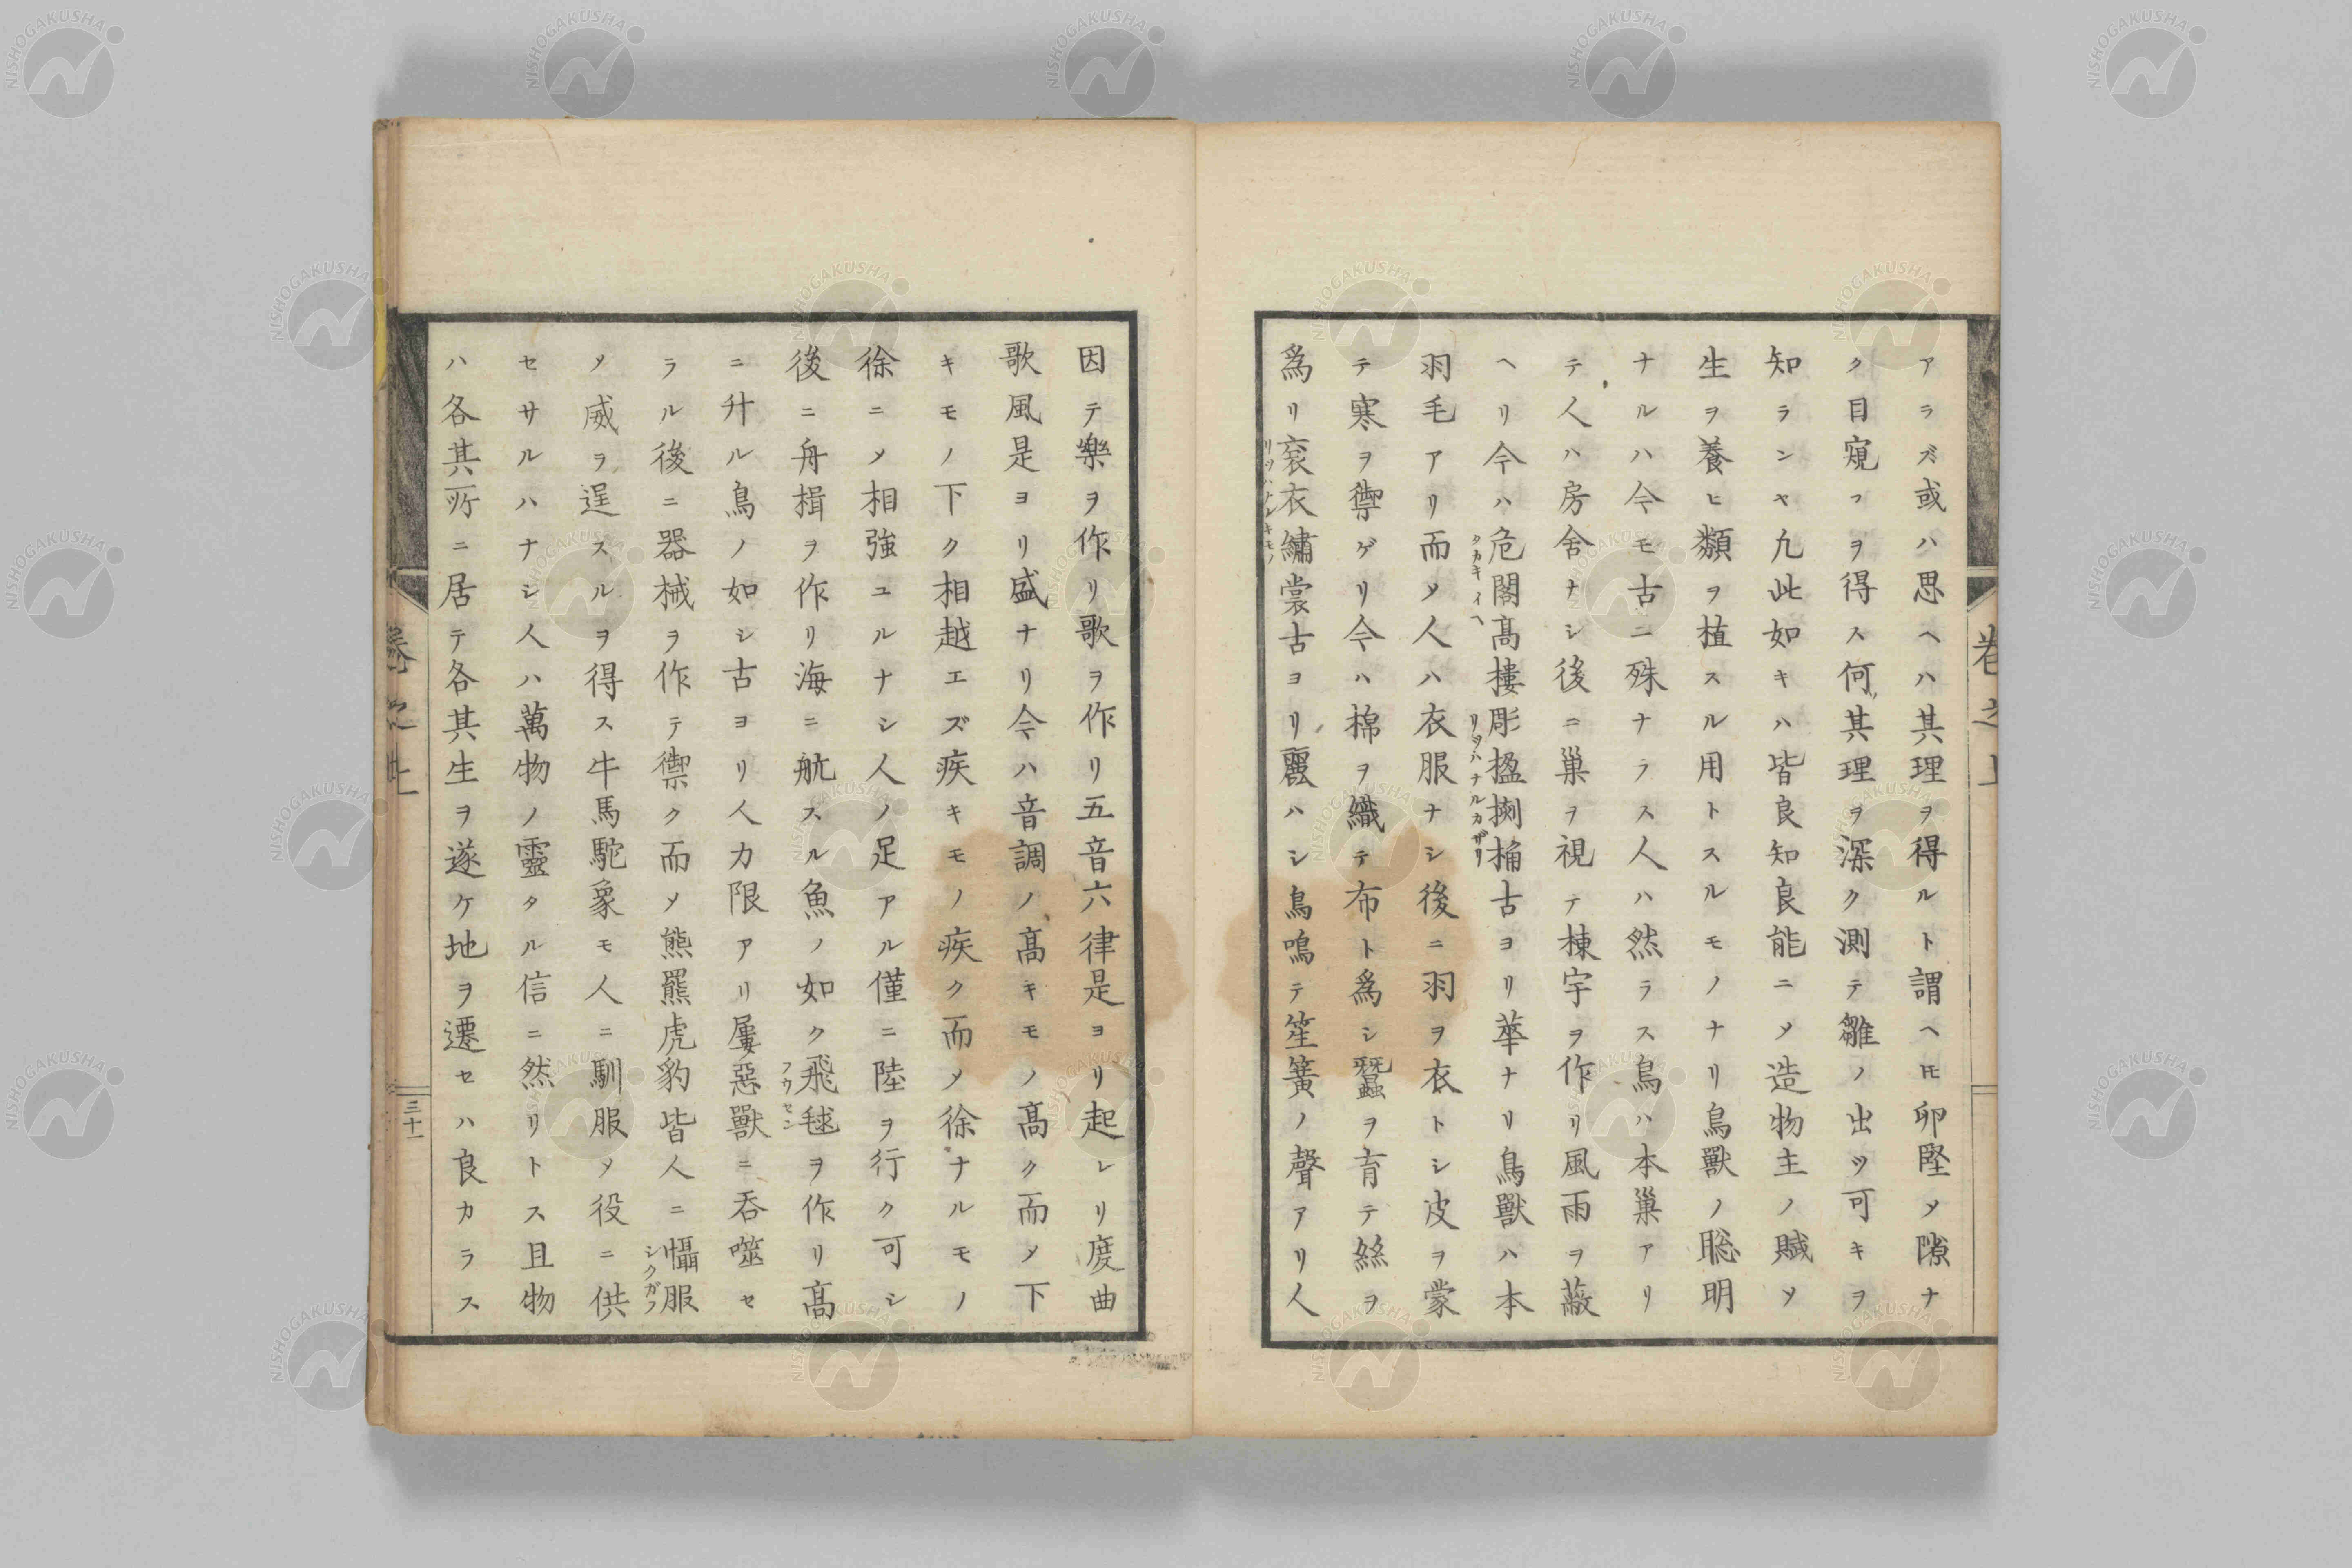 アラズ或ハ思ヘハ其理ヲ得ルト謂ヘㇳモ卵堅〆隙ナ
ク目窺フヲ得ス何ソ其理ヲ深ク測テ雛ノ出ツ可キヲ
知ランヤ凢此如キハ皆良知良能ニ〆造物主ノ賦ソ
生ヲ養ヒ類ヲ植スル用トスルモノナリ鳥獸ノ聡明
ナルハ今モ古ニ殊ナラス人ハ然ラス鳥ハ本巢アリ
テ人ハ房舍ナシ後ニ巢ヲ視テ棟宇ヲ作リ風雨ヲ蔽
ヘリ今ハ危閣髙樓彫楹刻桷古ヨリ華ナリ鳥獸ハ本
タカキイヘ
リヲハナルカザリ
羽毛アリ而〆人ハ衣服ナシ後ニ羽ヲ衣トシ皮ヲ蒙
テ寒ヲ禦ゲリ今ハ棉ヲ織テ布ト爲シ蠶ヲ育テ絲ヲ
爲リ袞衣繡裳古ヨリ麗ハシ鳥鳴テ笙簧ノ聲アリ人
因テ樂ヲ作リ歌ヲ作リ五音六律是ヨリ起レリ度曲
歌風是ヨリ盛ナリ今ハ音調ノ髙キモノ髙ク而〆下
キモノ下ク相越エズ疾キモノ疾ク而〆徐ナルモノ
徐ニ〆相強ユルナシ人ノ足アル僅ニ陸ヲ行ク可シ
後ニ舟楫ヲ作リ海ニ航スル魚ノ如ク飛毬ヲ作リ髙
フウセン
ニ升ル鳥ノ如シ古ヨリ人力限アリ屢惡獸ニ呑噬セ
ラル後ニ器械ヲ作テ禦ク而〆熊羆虎豹皆人ニ懾服
シタガフ
〆威ヲ逞スルヲ得ス牛馬駝象モ人ニ馴服〆役ニ供
セサルハナシ人ハ萬物ノ靈タル信ニ然リトス且物
ハ各其所ニ居テ各其生ヲ遂ケ地ヲ遷セハ良カラス
三十一
NISHOGAKUSHA